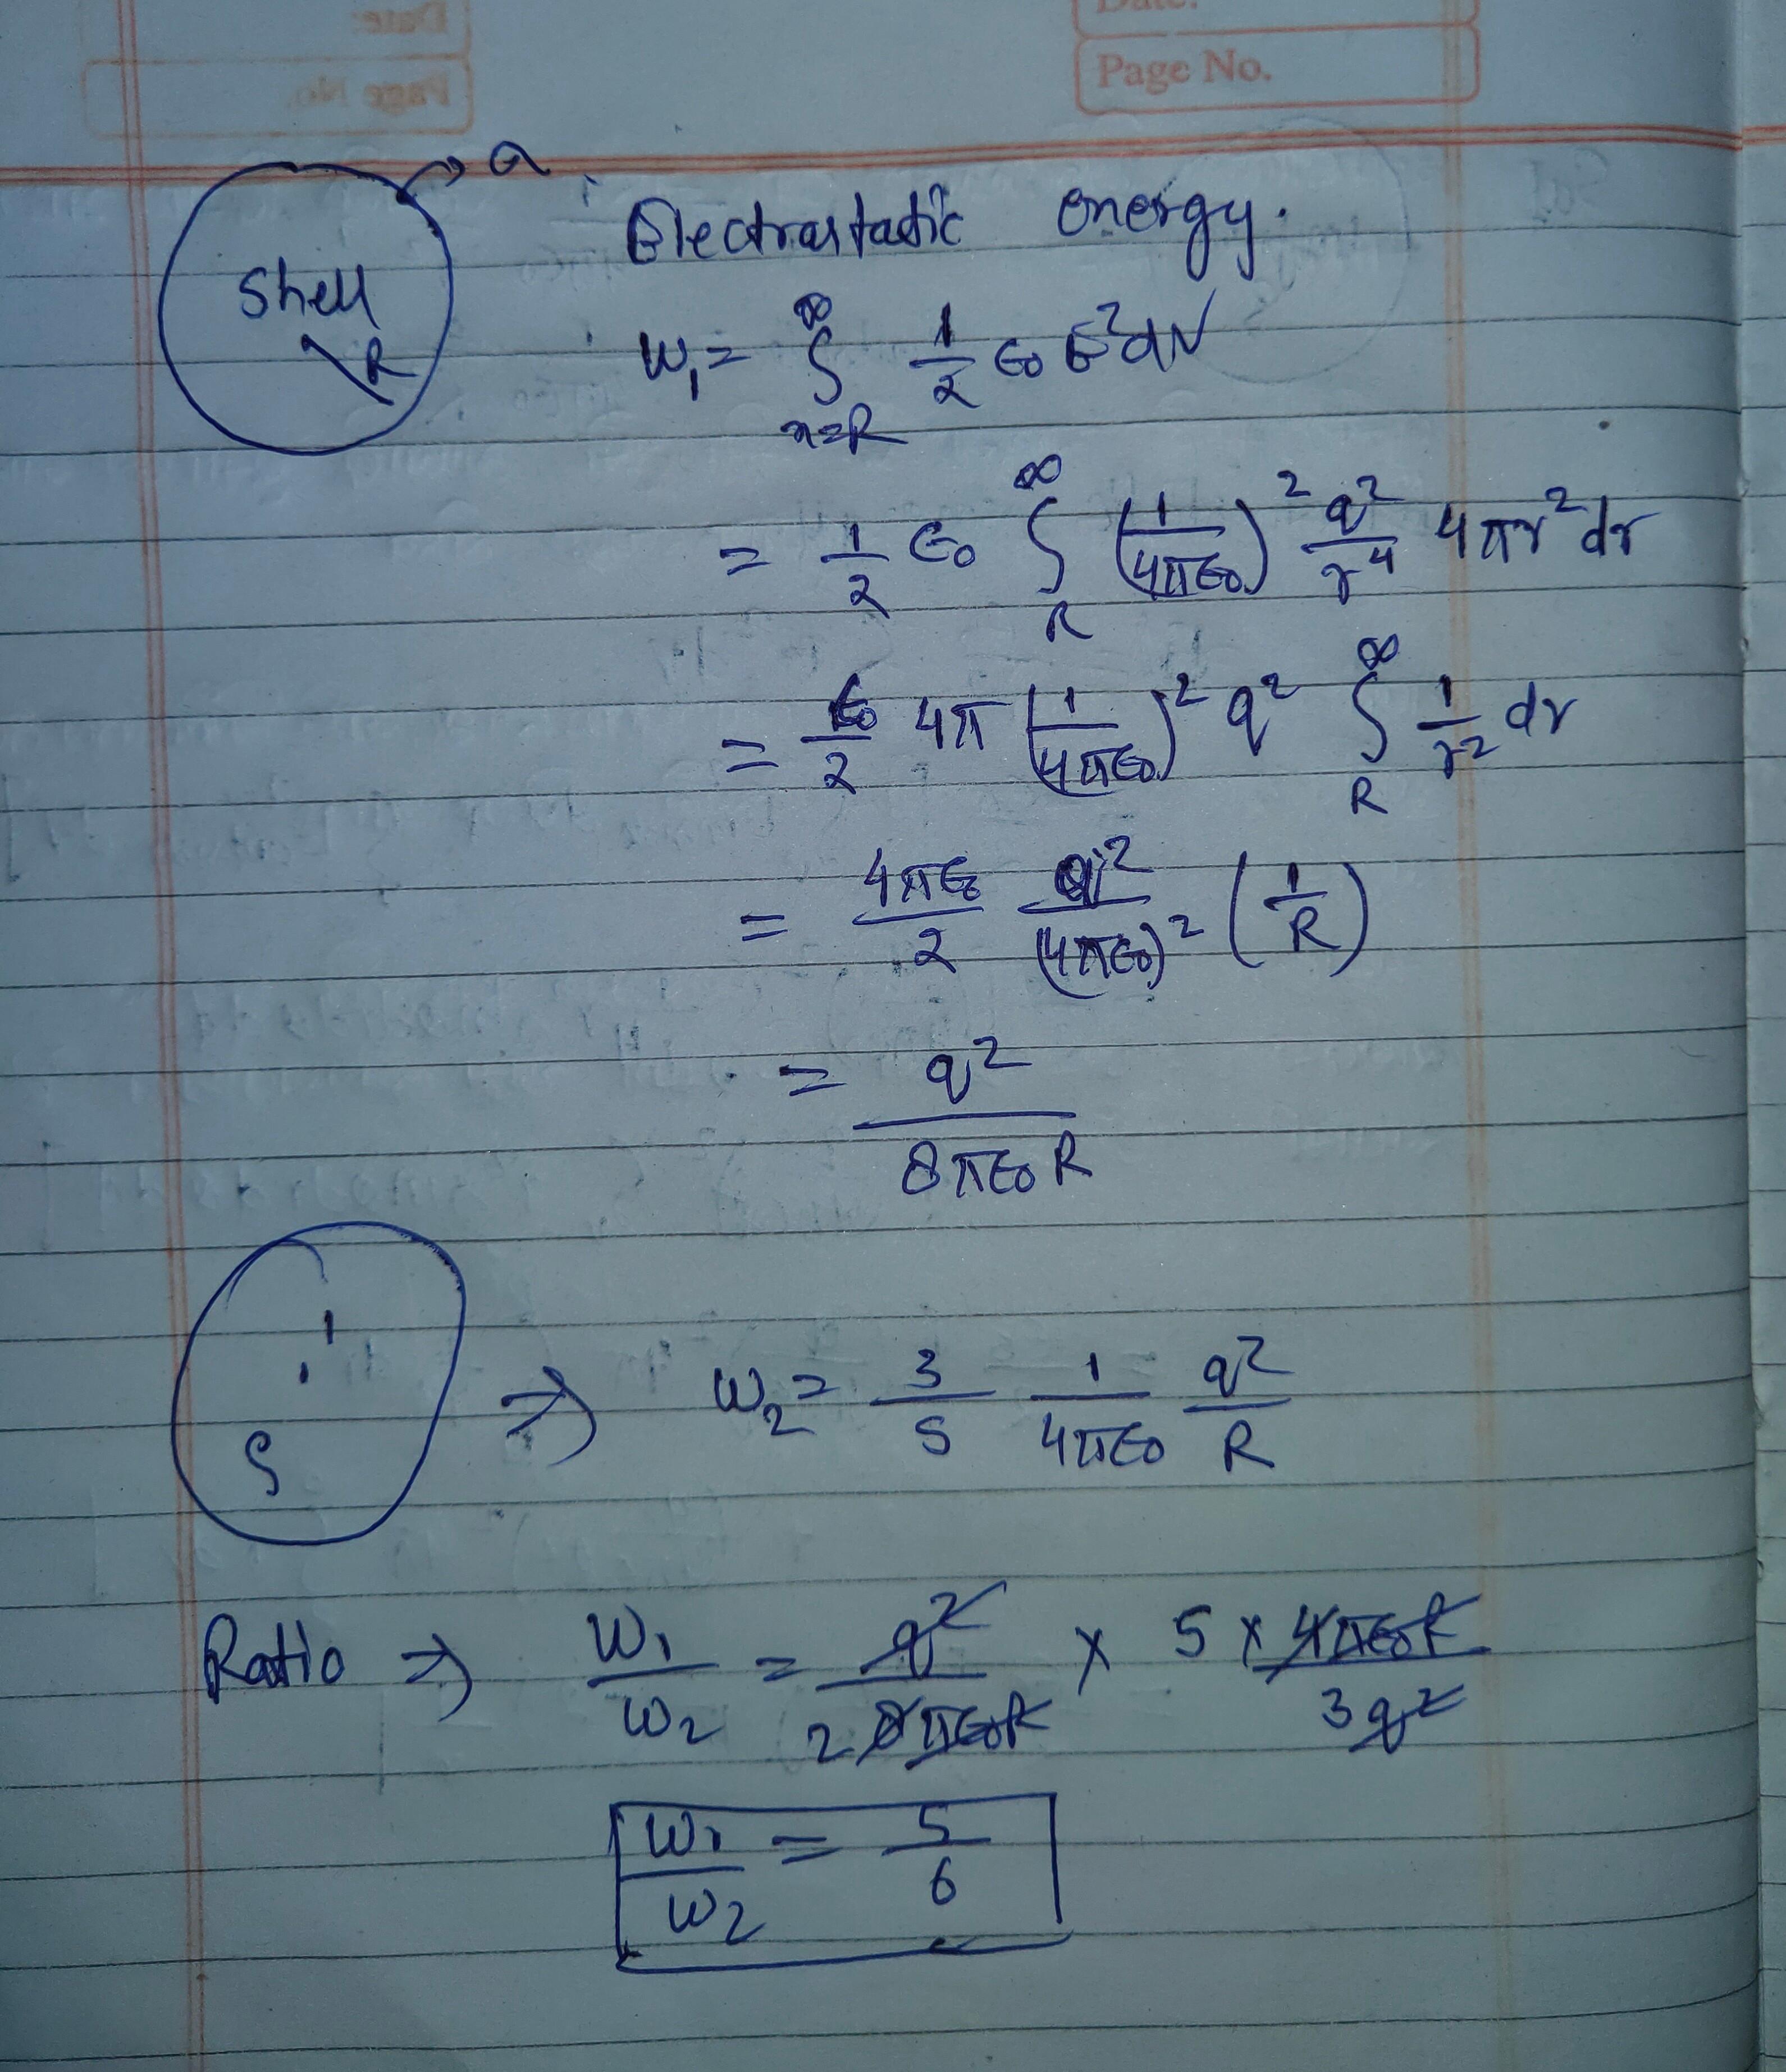 Date:
Page No.
Q
Electrostatic energy.
Shell
R
W₁ = ∫_{r=R}^{∞} 1/2 ε₀ E² dV
= 1/2 ε₀ ∫_R^∞ (1/4πε₀)² q²/r⁴ 4πr² dr
= ε₀/2 4π (1/4πε₀)² q² ∫_R^∞ 1/r² dr
= 4πε₀/2 q²/(4πε₀)² (1/R)
= q²/8πε₀R
ρ ⇒ W₂ = 3/5 1/4πε₀ q²/R
Ratio ⇒ W₁/W₂ = q²/2 8πε₀R × 5 × 4πε₀R/3q²
W₁/W₂ = 5/6